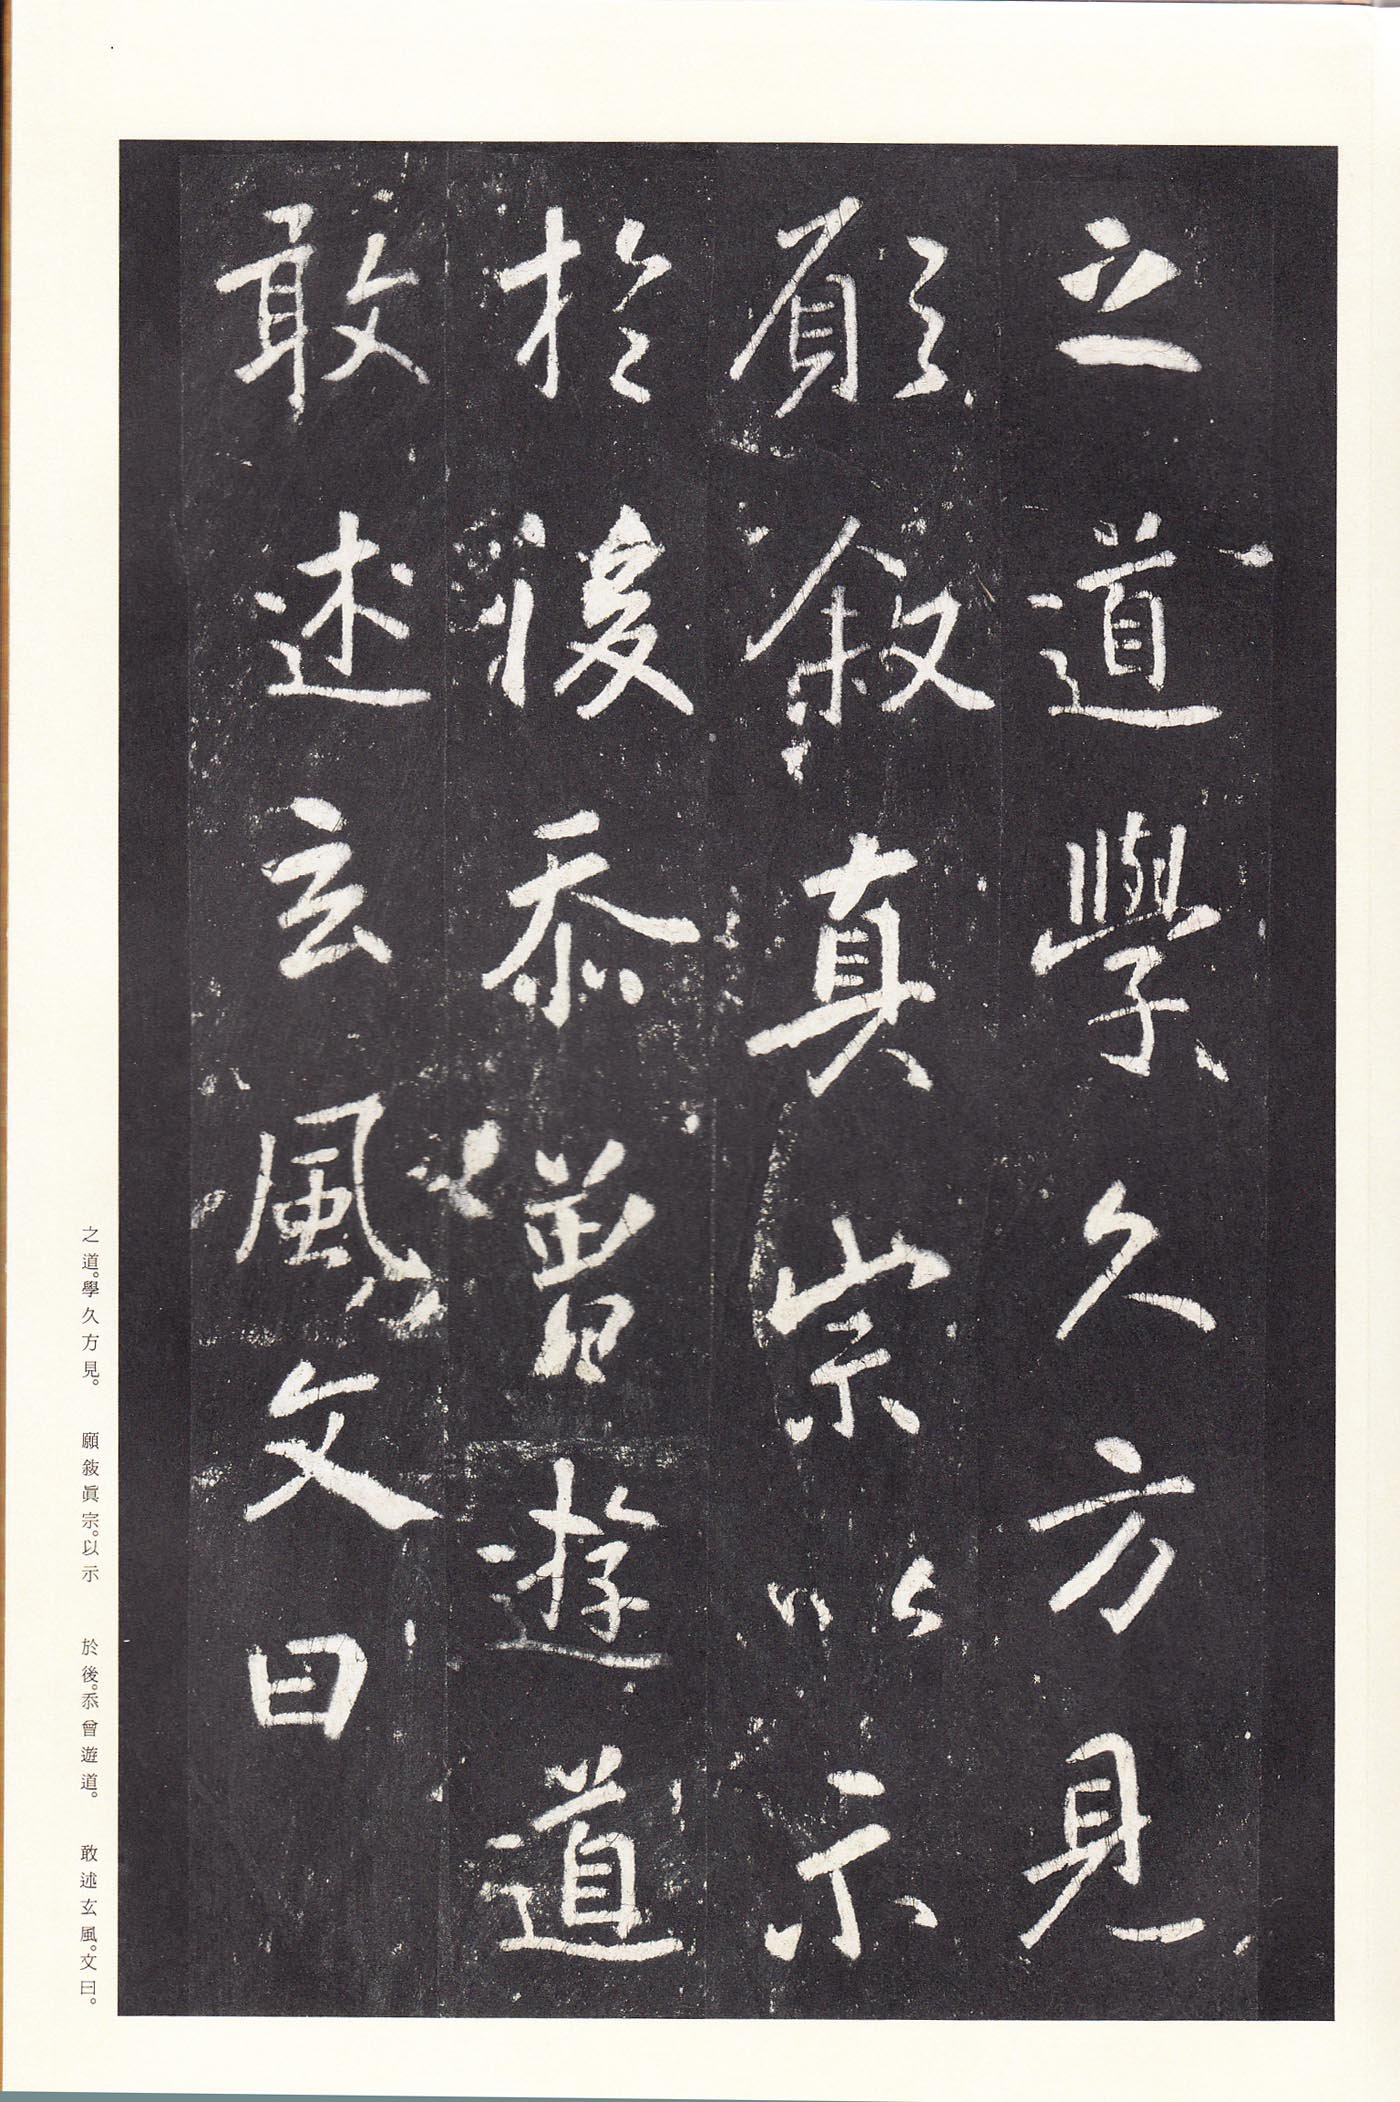 之道學久方見
願敘真宗以示
於後忝曾遊道
敢述玄風文曰
之道。學久方見。　願敘眞宗。以示　於後。忝曾遊道。　敢述玄風。文曰。